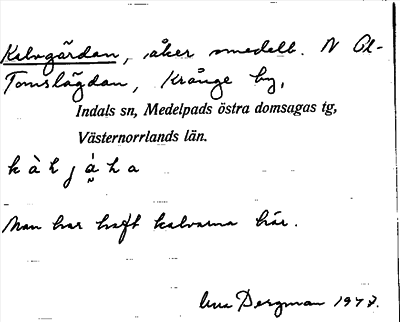 Kalvgärdan, åker omedelb. N Ol-
Tomslägdan, Krånge by,
Indals sn, Medelpads östra domsagas tg,
Västernorrlands län.
Man har haft kalvarna här.
Bergman 1973.